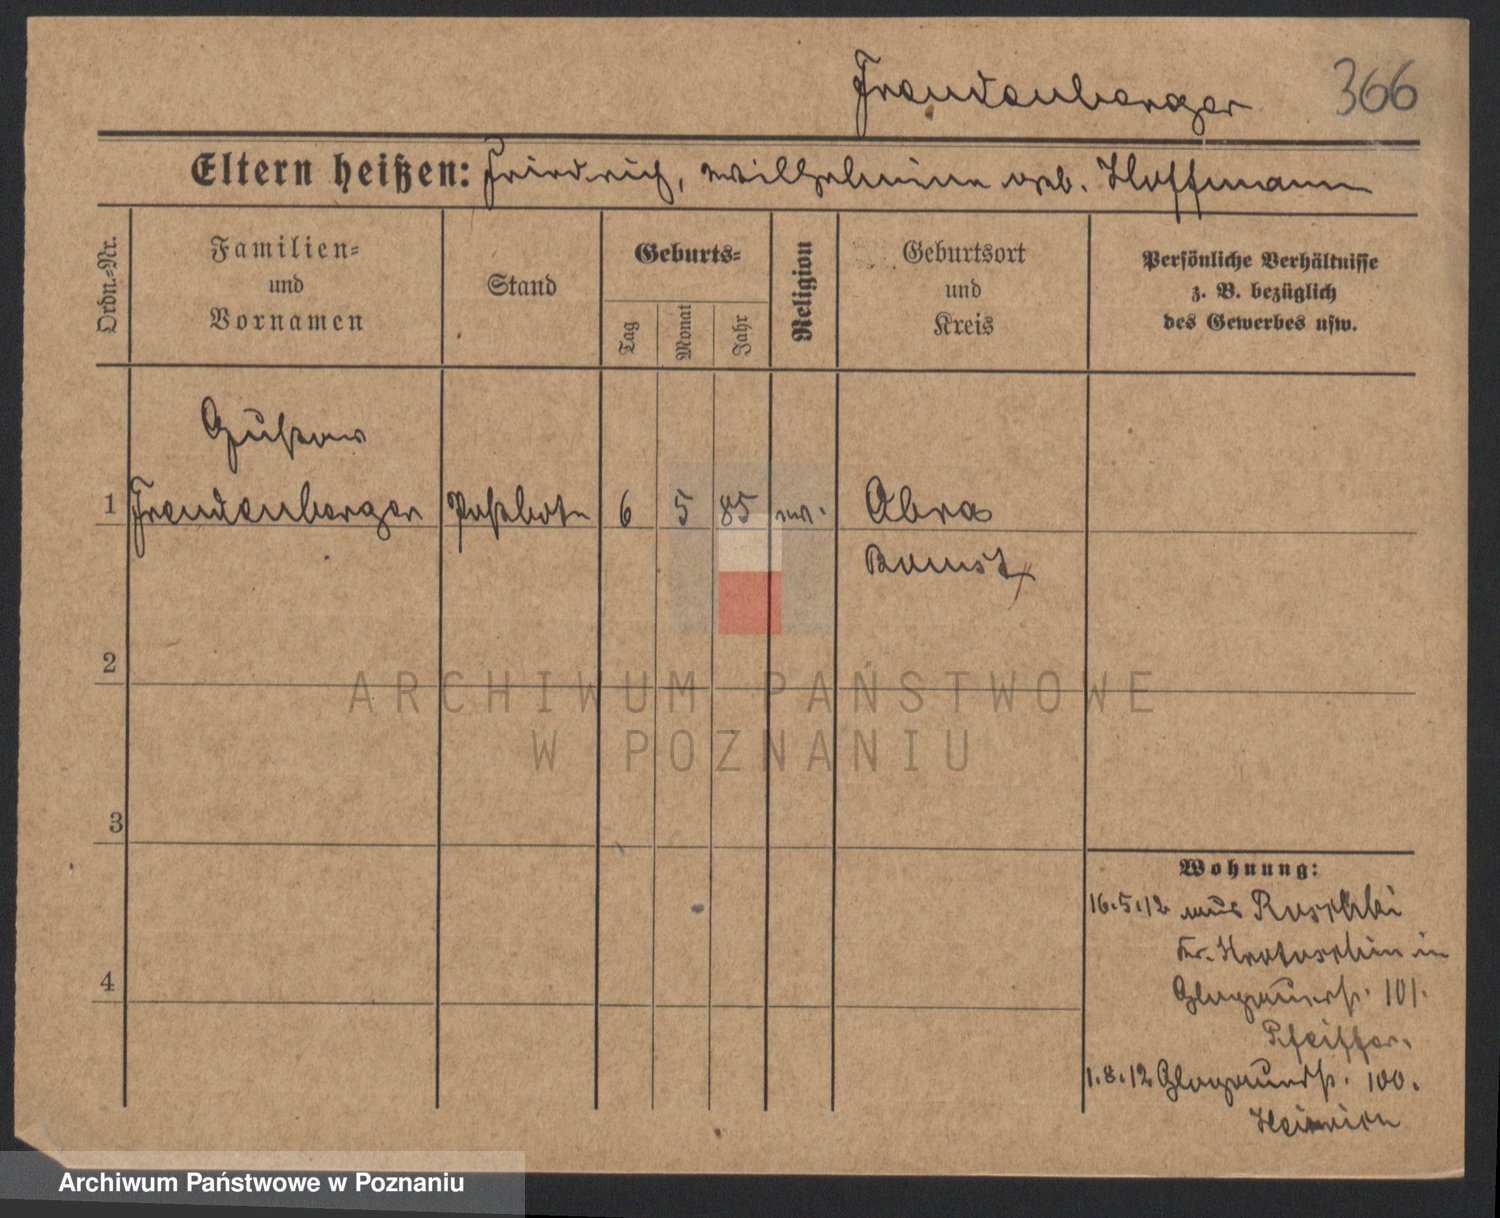 Freudenberger 366
Eltern heißen: Friedrich, Wilhelmine geb. Hoffmann
Ordn.-Nr.
Familien-
und
Vornamen
Stand
Geburts-
Tag
Monat
Jahr
Religion
Geburtsort
und
Kreis
Persönliche Verhältnisse
z. B. bezüglich
des Gewerbes usw.
Gustav
1 Freudenberger Postbote 6 5 85 ev. Obra
Bomst
2
ARCHIWUM PAŃSTWOWE
W POZNANIU
3
Wohnung:
16.5.12 aus Roschki
Kr. Krotoschin in
4
Glogauerstr. 101.
Pfeiffer.
1.8.12 Glogauerstr. 100.
Archiwum Państwowe w Poznaniu